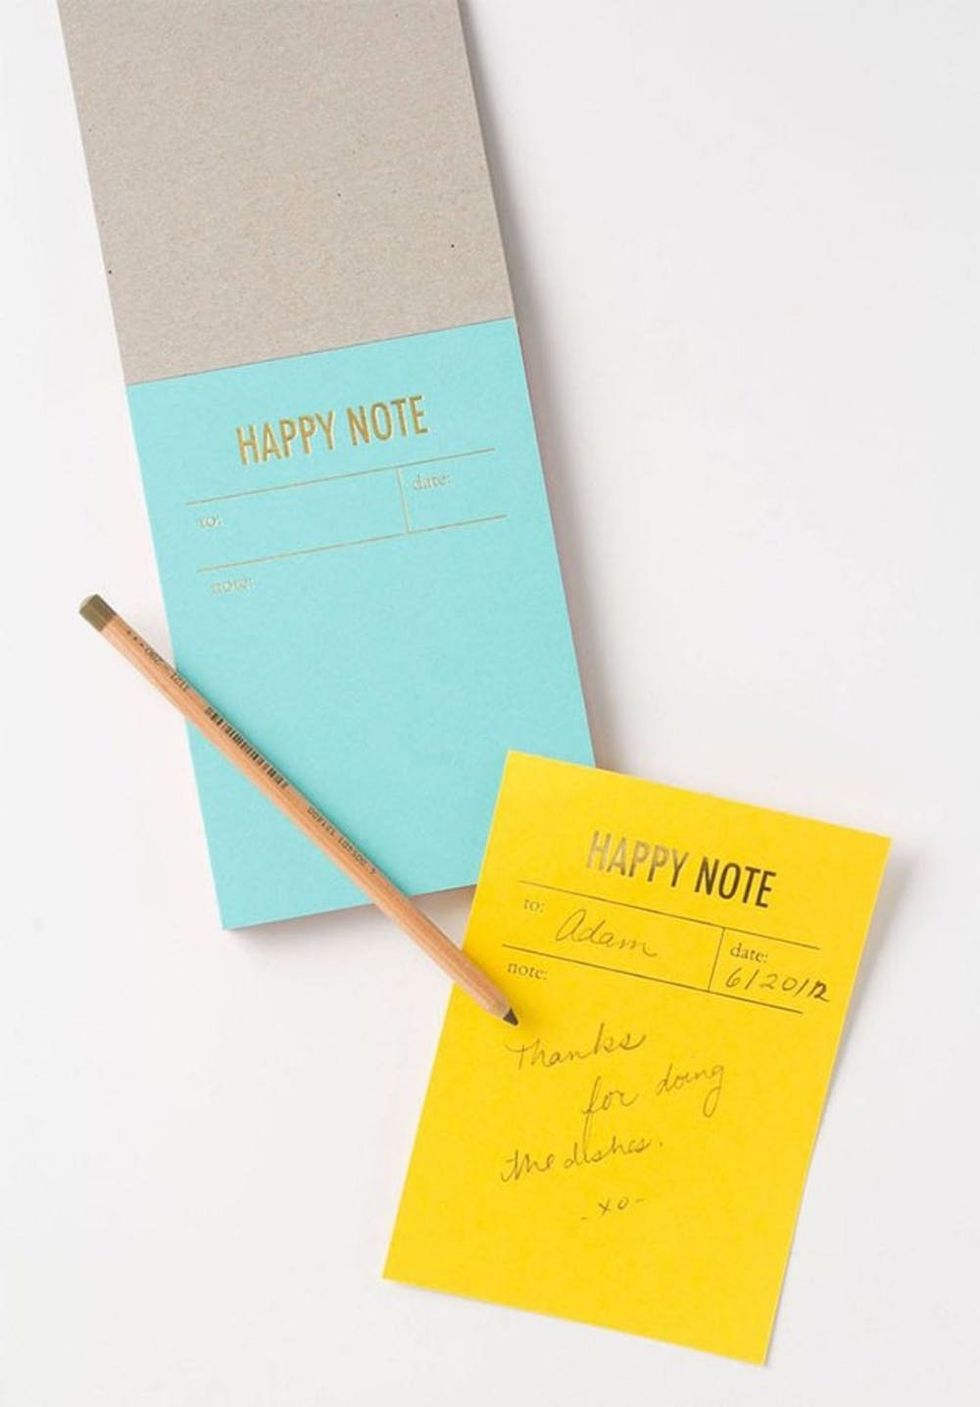 HAPPY NOTE
to:
date:
note:
HAPPY NOTE
to: Adam
date: 6/20/12
note:
Thanks
for doing
the dishes.
-xo-